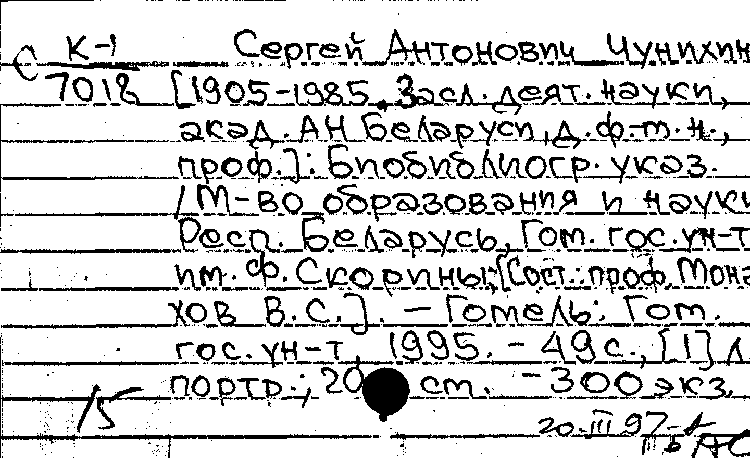 С К-1 Сергей Антонович Чунихин
7018 [1905-1985. Засл. деят. науки,
акад. АН Беларуси, д. ф.-м. н.,
проф.]: Биобиблиогр. указ.
/М-во образования и науки
Респ. Беларусь, Гом. гос. ун-т
им. Ф. Скорины; [Сост.: проф. Мона-
хов В.С.]. — Гомель: Гом.
гос. ун-т, 1995. - 49 с., [1] л
портр.; 20 см. - 300 экз.
15
20.III 97-